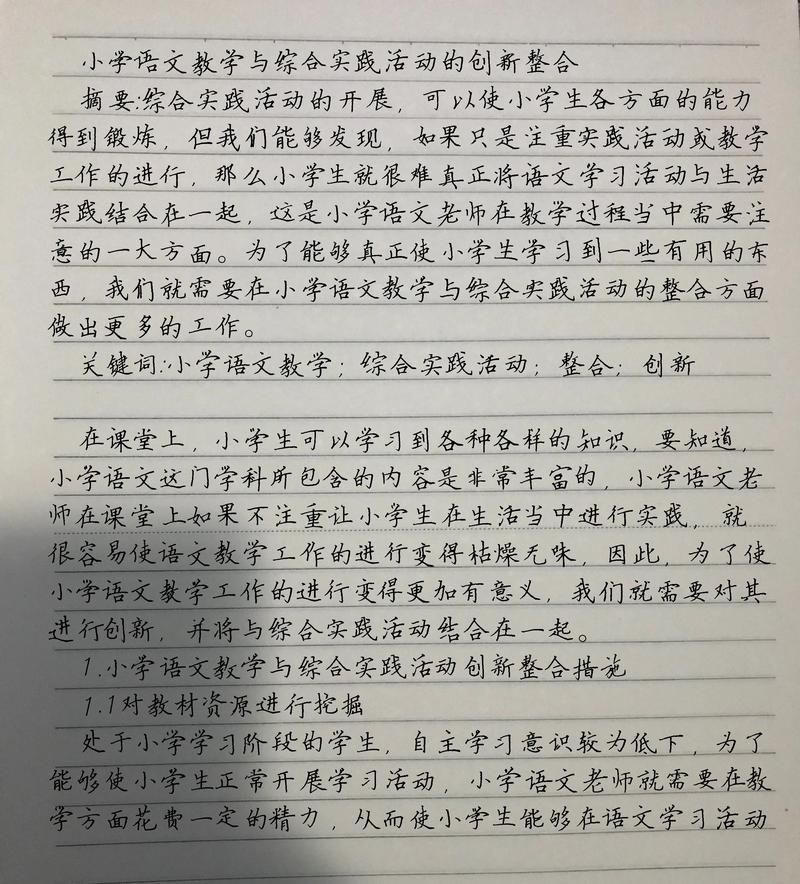 小学语文教学与综合实践活动的创新整合
摘要:综合实践活动的开展，可以使小学生各方面的能力
得到锻炼，但我们能够发现，如果只是注重实践活动或教学
工作的进行，那么小学生就很难真正将语文学习活动与生活
实践结合在一起，这是小学语文老师在教学过程当中需要注
意的一大方面。为了能够真正使小学生学习到一些有用的东
西，我们就需要在小学语文教学与综合实践活动的整合方面
做出更多的工作。
关键词:小学语文教学；综合实践活动；整合；创新
在课堂上，小学生可以学习到各种各样的知识，要知道，
小学语文这门学科所包含的内容是非常丰富的，小学语文老
师在课堂上如果不注重让小学生在生活当中进行实践，就
很容易使语文教学工作的进行变得枯燥无味，因此，为了使
小学语文教学工作的进行变得更加有意义，我们就需要对其
进行创新，并将与综合实践活动结合在一起。
1.小学语文教学与综合实践活动创新整合措施
1.1对教材资源进行挖掘
处于小学学习阶段的学生，自主学习意识较为低下，为了
能够使小学生正常开展学习活动，小学语文老师就需要在教
学方面花费一定的精力，从而使小学生能够在语文学习活动